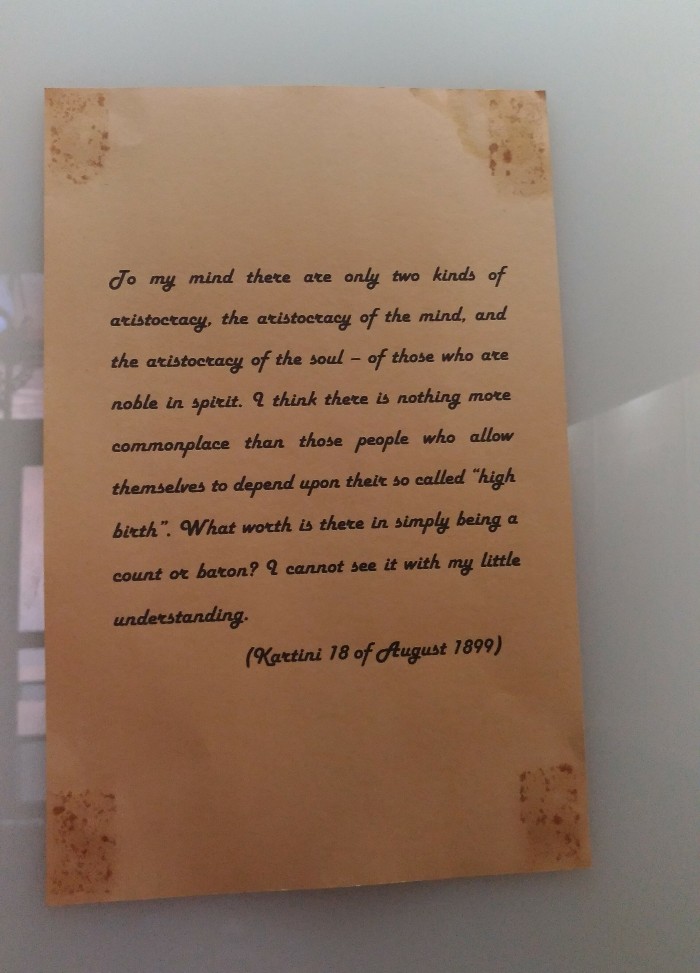 To my mind there are only two kinds of
aristocracy, the aristocracy of the mind, and
the aristocracy of the soul – of those who are
noble in spirit. I think there is nothing more
commonplace than those people who allow
themselves to depend upon their so called “high
birth”. What worth is there in simply being a
count or baron? I cannot see it with my little
understanding.
(Kartini 18 of August 1899)